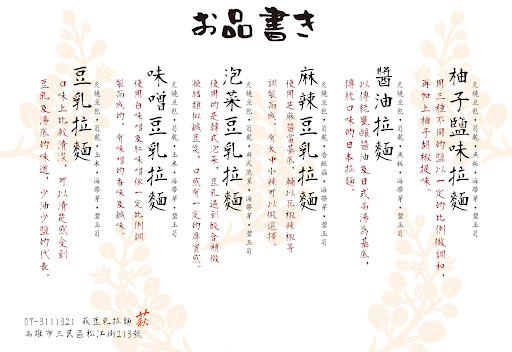 お品書き
柚子鹽味拉麵
炙燒豆包，筍乾，魚板，海帶芽，碧玉筍
用三種不同的鹽以一定的比例做調和，
再加上柚子胡椒提味。
醬油拉麵
炙燒豆包，筍乾，魚板，海帶芽，碧玉筍
以傳統甕釀醬油及日式高湯為基底，
傳統口味的日本拉麵。
麻辣豆乳拉麵
炙燒豆包，筍乾，杏鮑菇，海帶芽，碧玉筍
使用芝麻醬當基底，輔以豆椒辣椒等
調製而成，有大中小辣可以做選擇。
泡菜豆乳拉麵
炙燒豆包，筍乾，韓式泡菜，海帶芽，碧玉筍
使用的是韓式泡菜，豆乳遇到酸會稍微
凝結類似鹹豆漿，口感有一定的厚實感。
味噌豆乳拉麵
炙燒豆包，筍乾，玉米，海帶芽，碧玉筍
使用白味噌及紅味噌做一定比例調
製而成的，有味噌的香味及鹹味。
豆乳拉麵
炙燒豆包，筍乾，玉米，海帶芽，碧玉筍
口味上比較清淡，可以清楚感受到
豆乳及湯底的味道，少油少鹽的代表。
07-3111321 萩豆乳拉麵 萩
高雄市三民區松江街213號